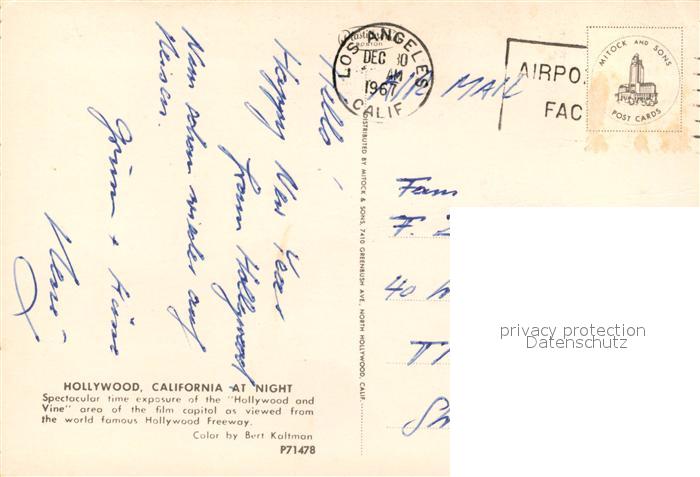 Hello,
Happy New Year
from Hollywood
Nun schon wieder auf
Reisen.
Plastichrome
BOSTON
LOS ANGELES
DEC 30
AM
1967
CALIF
AIR MAIL
AIRPO
FAC
MITOCK AND SONS
POST CARDS
DISTRIBUTED BY MITOCK & SONS, 7410 GREENBUSH AVE. NORTH HOLLYWOOD, CALIF.
Fam
F.
40
privacy protection
Datenschutz
HOLLYWOOD, CALIFORNIA AT NIGHT
Spectacular time exposure of the "Hollywood and
Vine" area of the film capitol as viewed from
the world famous Hollywood Freeway.
Color by Bert Kaltman
P71478